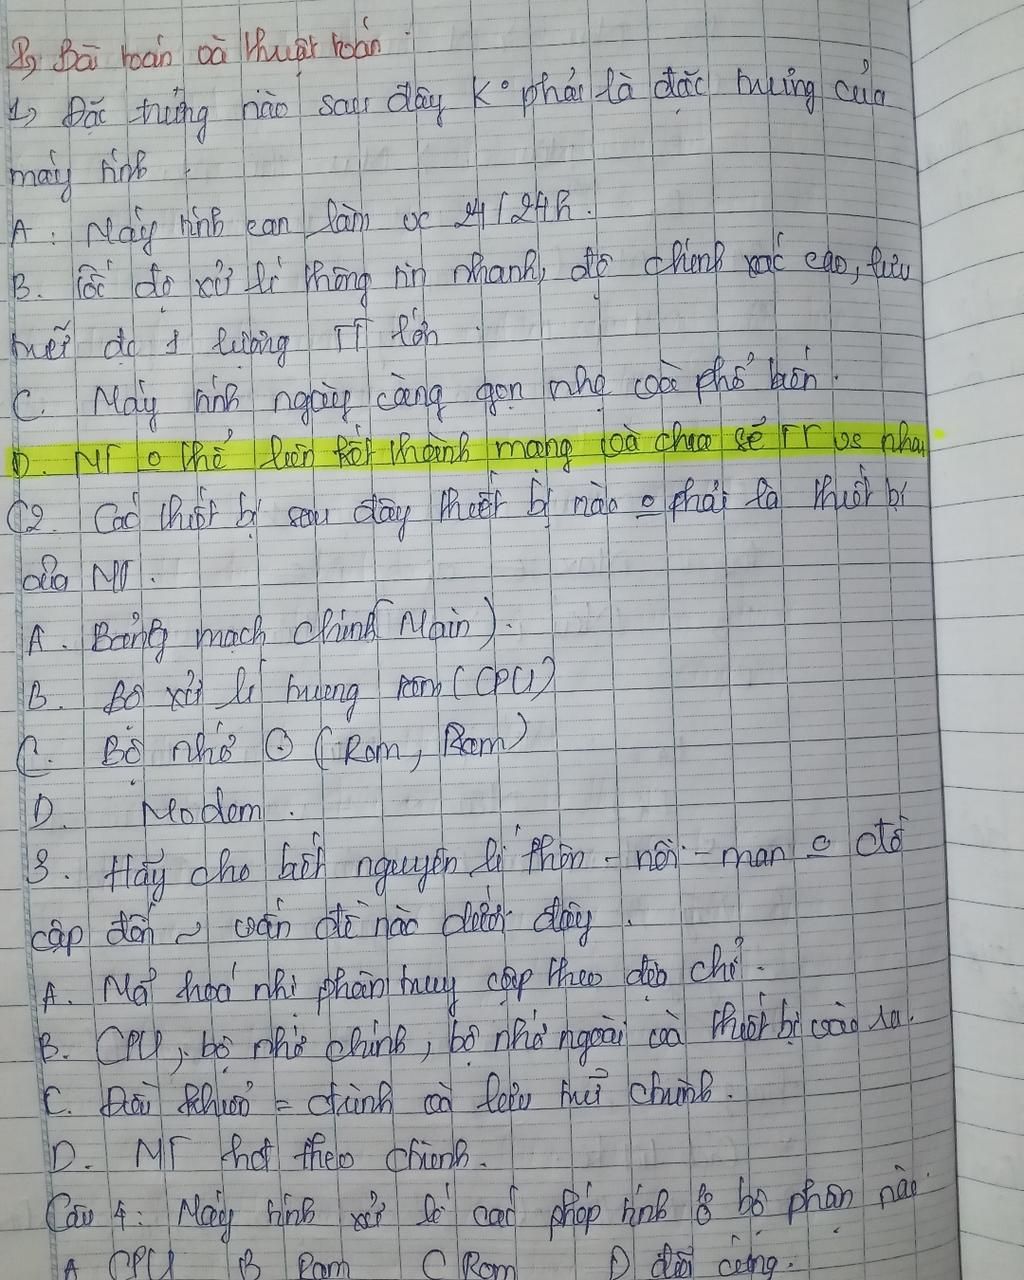 2, Bài toán và thuật toán
1, Đặc trưng nào sau đây K° phải là đặc trưng của
máy tính
A: Máy tính can làm vc 24/24h.
B. Tốc độ xử lí thông tin nhanh, độ chính xác cao, lưu
trữ đc 1 lượng TT lớn
C. Máy tính ngày càng gọn nhẹ và phổ biến.
D. MT o thể liên kết thành mạng và chia sẻ TT vs nhau
C2. Các thiết bị sau đây thiết bị nào o phải là thiết bị
của MT.
A. Bảng mạch chính (Main).
B. Bộ xử lí trung tâm (CPU)
C. Bộ nhớ (Rom, Ram)
D. Modem.
3. Hãy cho biết nguyên lí Phôn - nôi - man o đề
cập đến ~ vấn đề nào dưới đây.
A. Mã hoá nhị phân, truy cập theo địa chỉ.
B. CPU, bộ nhớ chính, bộ nhớ ngoài và thiết bị vào ra.
C. Điều khiển = ctrình và lưu trữ ctrình.
D. MT hđ theo ctrình.
Câu 4: Máy tính xử lí các phép tính ở bộ phận nào
A CPU B Ram C Rom D đĩa cứng.